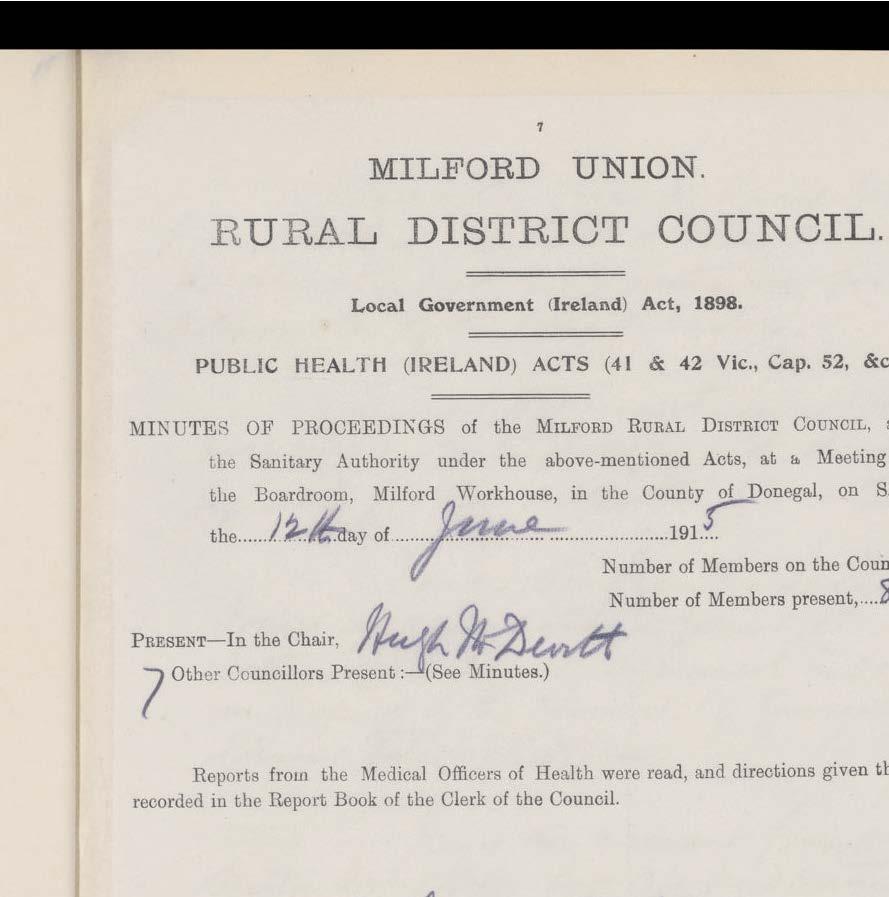 7
MILFORD UNION.
RURAL DISTRICT COUNCIL.
Local Government (Ireland) Act, 1898.
PUBLIC HEALTH (IRELAND) ACTS (41 & 42 Vic., Cap. 52, &c
MINUTES OF PROCEEDINGS of the MILFORD RURAL DISTRICT COUNCIL,
the Sanitary Authority under the above-mentioned Acts, at a Meeting
the Boardroom, Milford Workhouse, in the County of Donegal, on S
the......12th.day of........June......................1915...
Number of Members on the Coun
Number of Members present,....8
PRESENT—In the Chair, Hugh McDevitt
7 Other Councillors Present :—(See Minutes.)
Reports from the Medical Officers of Health were read, and directions given th
recorded in the Report Book of the Clerk of the Council.